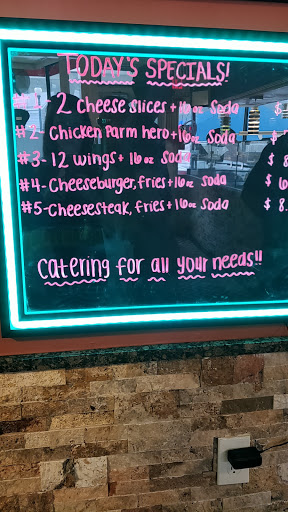 TODAY'S SPECIALS!
#1- 2 Cheese slices + 16oz Soda $
#2- Chicken Parm hero + 16oz Soda $
#3- 12 wings + 16oz Soda $ 8
#4- Cheeseburger, fries + 16oz Soda $ 6
#5- Cheesesteak, fries + 16oz Soda $ 8.
Catering for all your needs!!